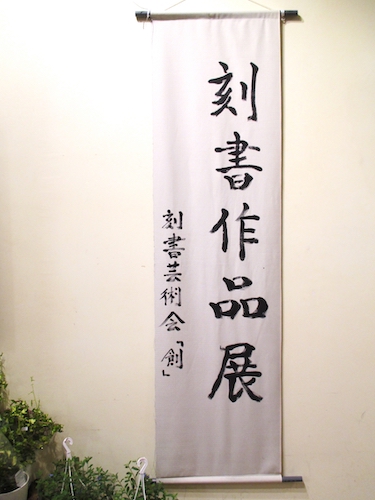 刻書作品展
刻書芸術会「創」